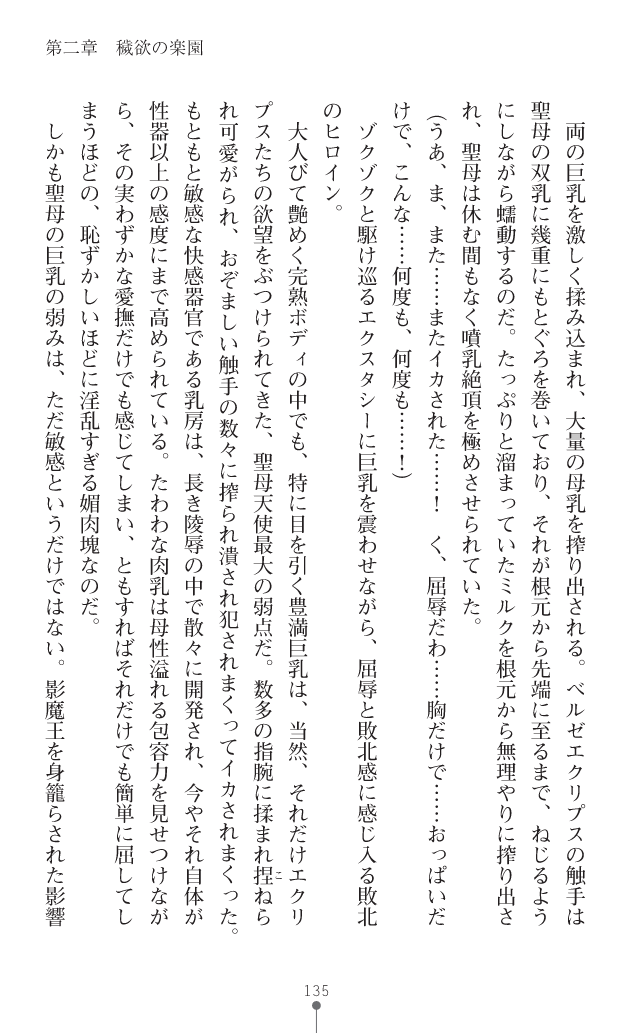 第二章　穢欲の楽園
　両の巨乳を激しく揉み込まれ、大量の母乳を搾り出される。ベルゼエクリプスの触手は
聖母の双乳に幾重にもとぐろを巻いており、それが根元から先端に至るまで、ねじるよう
にしながら蠕動するのだ。たっぷりと溜まっていたミルクを根元から無理やりに搾り出さ
れ、聖母は休む間もなく噴乳絶頂を極めさせられていた。
（うあ、ま、また……またイカされた……！　く、屈辱だわ……胸だけで……おっぱいだ
けで、こんな……何度も、何度も……！）
　ゾクゾクと駆け巡るエクスタシーに巨乳を震わせながら、屈辱と敗北感に感じ入る敗北
のヒロイン。
　大人びて艶めく完熟ボディの中でも、特に目を引く豊満巨乳は、当然、それだけエクリ
プスたちの欲望をぶつけられてきた、聖母天使最大の弱点だ。数多の指腕に揉まれ捏ねら
れ可愛がられ、おぞましい触手の数々に搾られ潰され犯されまくってイカされまくった。
もともと敏感な快感器官である乳房は、長き陵辱の中で散々に開発され、今やそれ自体が
性器以上の感度にまで高められている。たわわな肉乳は母性溢れる包容力を見せつけなが
ら、その実わずかな愛撫だけでも感じてしまい、ともすればそれだけでも簡単に屈してし
まうほどの、恥ずかしいほどに淫乱すぎる媚肉塊なのだ。
　しかも聖母の巨乳の弱みは、ただ敏感というだけではない。影魔王を身籠らされた影響
こ
135